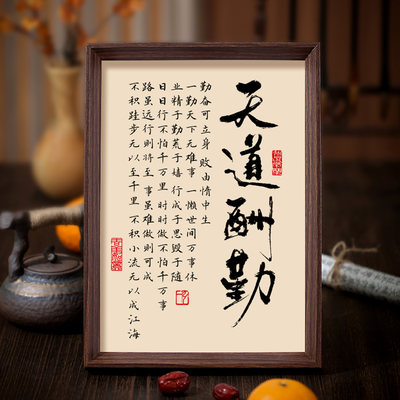 天道酬勤
勤奋可立身 败由情中生
一勤天下无难事 一懒世间万事休
业精于勤荒于嬉 行成于思毁于随
日日行不怕千万里 时时做不怕千万事
路虽远行則将至 事虽难做則可成
不积跬步无以至千里 不积小流无以成江海